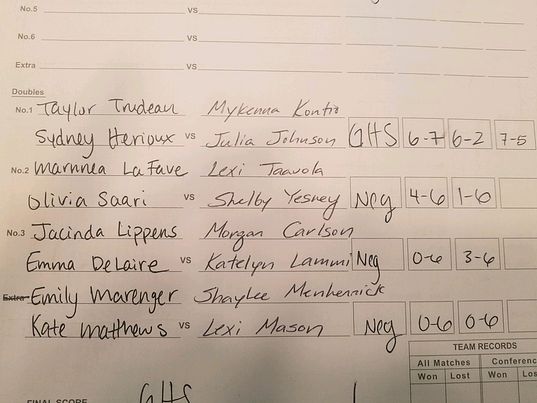 No.5 VS
No.6 VS
Extra VS
Doubles
No.1 Taylor Trudeau Mykenna Kontio
Sydney Herioux VS Julia Johnson GHS 6-7 6-2 7-5
No.2 Marnnea LaFave Lexi Taavola
Olivia Saari VS Shelby Yesney Neg 4-6 1-6
No.3 Jacinda Lippens Morgan Carlson
Emma DeLaire VS Katelyn Lammi Neg 0-6 3-6
Extra Emily Marenger Shaylee Menhennick
Kate Matthews VS Lexi Mason Neg 0-6 0-6
TEAM RECORDS
All Matches Conferenc
Won Lost Won Los
FINAL SCORE GHS 1